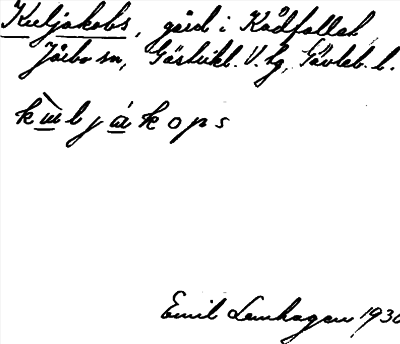 Kuljakobs, gård i Kådfallet
Järbo sn, Gästrikl. V. tg, Gävleb. l.
kùljákops
Emil Lenhagen 1930